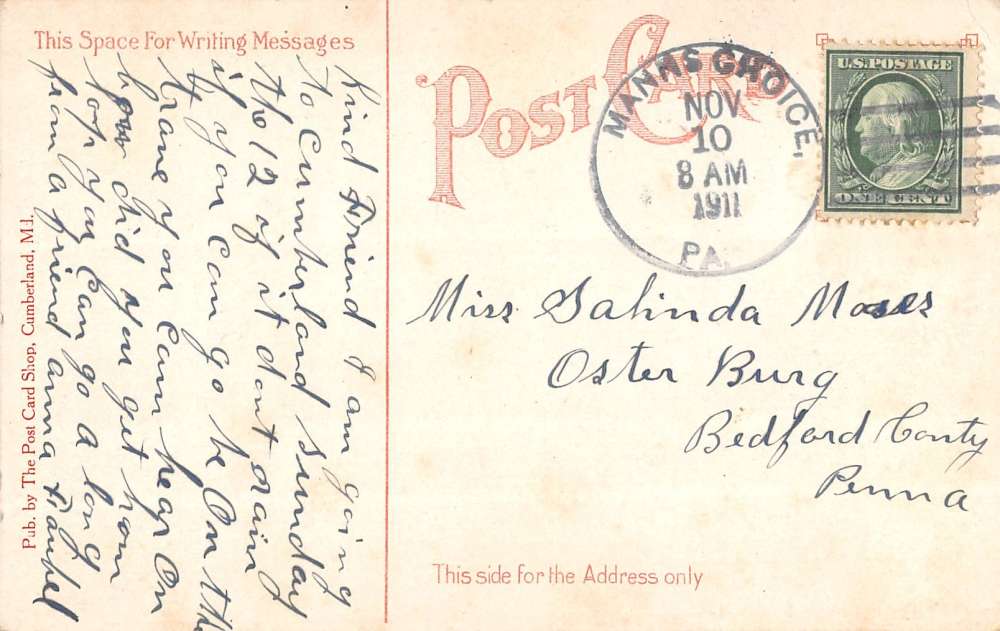 This Space For Writing Messages
POST CARD
MANNS CHOICE,
NOV
10
8 AM
1911
PA.
U.S. POSTAGE
ONE CENT
Kind Friend I am going
to Cumberland sunday
the 12 if it dont rain
if you can go be on the
traine you cam hop on
how did you get hom
hop you can go a long
from a friend anna
Miss Salinda Moses
Oster Burg
Bedford Conty
Penna
This side for the Address only
Pub. by The Post Card Shop, Cumberland, Md.